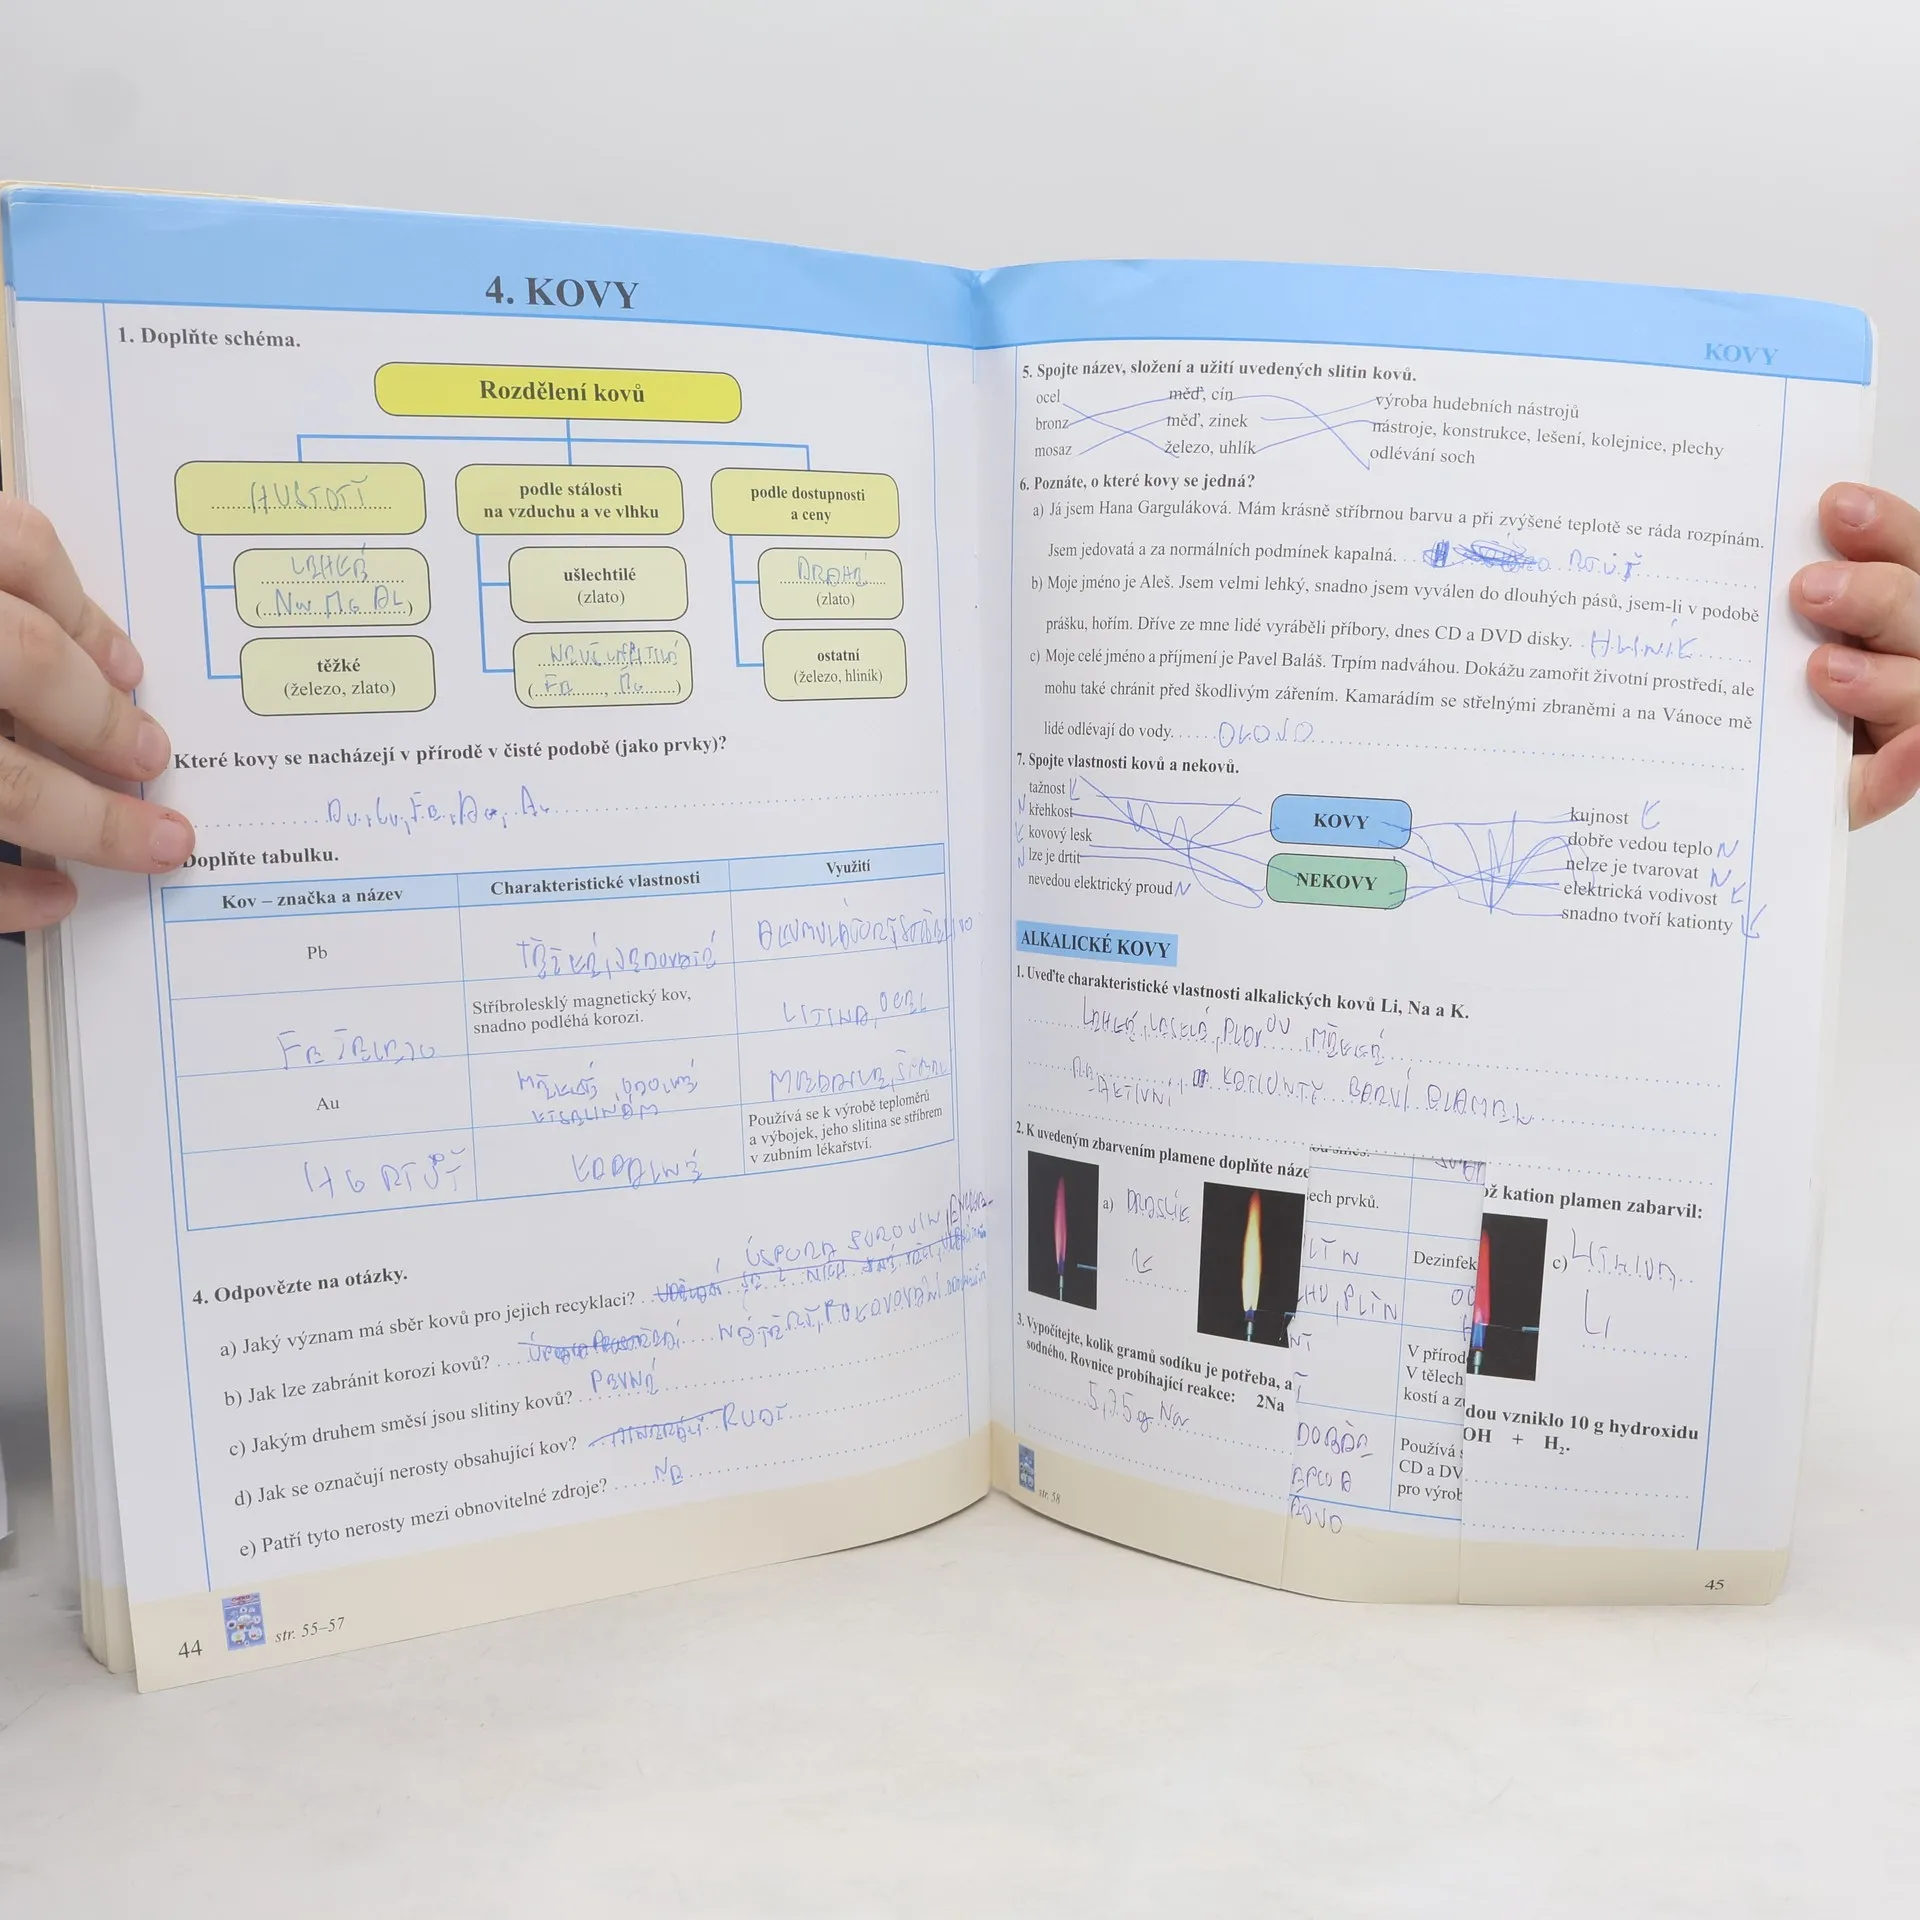 4. KOVY
1. Doplňte schéma.
Rozdělení kovů
HUSTOTY
podle stálosti
na vzduchu a ve vlhku
podle dostupnosti
a ceny
LEHKÉ
ušlechtilé
(zlato)
DRAHÉ
(zlato)
těžké
(železo, zlato)
ostatní
(železo, hliník)
Které kovy se nacházejí v přírodě v čisté podobě (jako prvky)?
Doplňte tabulku.
Kov – značka a název
Charakteristické vlastnosti
Využití
Pb
Stříbrolesklý magnetický kov,
snadno podléhá korozi.
LITINA, OCEL
FE ŽELEZO
Au
Používá se k výrobě teploměrů
a výbojek, jeho slitina se stříbrem
v zubním lékařství.
4. Odpovězte na otázky.
a) Jaký význam má sběr kovů pro jejich recyklaci?
ÚSPORA SUROVIN
b) Jak lze zabránit korozi kovů?
c) Jakým druhem směsí jsou slitiny kovů? PEVNÉ
d) Jak se označují nerosty obsahující kov? RUDY
e) Patří tyto nerosty mezi obnovitelné zdroje? NE
44
str. 55–57
KOVY
5. Spojte název, složení a užití uvedených slitin kovů.
ocel měď, cín výroba hudebních nástrojů
bronz měď, zinek nástroje, konstrukce, lešení, kolejnice, plechy
mosaz železo, uhlík odlévání soch
6. Poznáte, o které kovy se jedná?
a) Já jsem Hana Garguláková. Mám krásně stříbrnou barvu a při zvýšené teplotě se ráda rozpínám.
Jsem jedovatá a za normálních podmínek kapalná.
b) Moje jméno je Aleš. Jsem velmi lehký, snadno jsem vyválen do dlouhých pásů, jsem-li v podobě
prášku, hořím. Dříve ze mne lidé vyráběli příbory, dnes CD a DVD disky. HLINÍK
c) Moje celé jméno a příjmení je Pavel Baláš. Trpím nadváhou. Dokážu zamořit životní prostředí, ale
mohu také chránit před škodlivým zářením. Kamarádím se střelnými zbraněmi a na Vánoce mě
lidé odlévají do vody. OLOVO
7. Spojte vlastnosti kovů a nekovů.
tažnost K
N křehkost
K kovový lesk
N lze je drtit
nevedou elektrický proud N
KOVY
NEKOVY
kujnost K
dobře vedou teplo N
nelze je tvarovat N
elektrická vodivost K
snadno tvoří kationty K
ALKALICKÉ KOVY
1. Uveďte charakteristické vlastnosti alkalických kovů Li, Na a K.
2. K uvedeným zbarvením plamene doplňte náze
ož kation plamen zabarvil:
a) DRASLÍK
K
c) LITHIUM
Li
ech prvků.
Dezinfek
V přírod
V tělech
kostí a zu
Používá s
CD a DV
pro výrob
3. Vypočítejte, kolik gramů sodíku je potřeba, a
dou vzniklo 10 g hydroxidu
sodného. Rovnice probíhající reakce: 2Na
OH + H₂.
5,75 g Na
str. 58
45